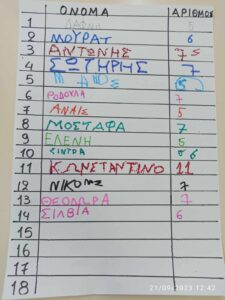 ΟΝΟΜΑ ΑΡΙΘΜΟΣ
1 5
2 ΜΟΥΡΑΤ 6
3 ΑΝΤΩΝΗΣ 75
4 ΣΩΤΗΡΗΣ 7
5
6 ΡΟΔΟΥΛΑ 7
7 ΑΝΑΙΣ 5
8 ΜΟΣΤΑΦΑ 7
9 ΕΛΕΝΗ 5
10 ΣΙΝΤΡΑ 6
11 ΚΩΝΣΤΑΝΤΙΝΟ 11
12 ΝΙΚΟΛΗΣ 7
13 ΘΕΟΔΩΡΑ 7
14 ΣΙΛΒΙΑ 6
15
16
17
18
21/09/2023 12:42